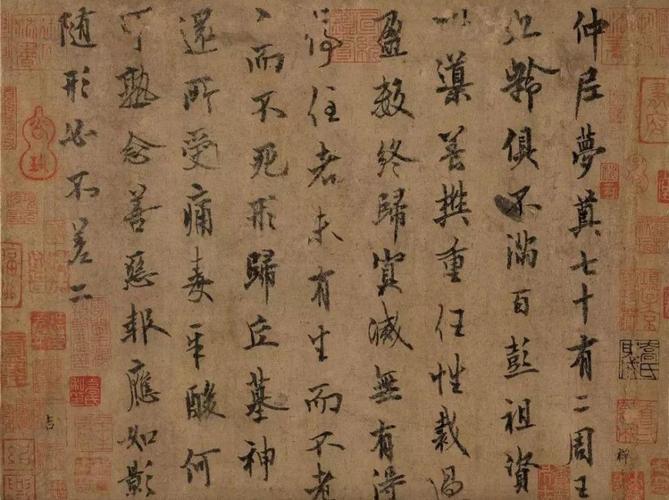 仲尼夢奠七十有二周王
九齡俱不滿百彭祖資
以導善樊重任性裁過
盈數終歸冥滅無有得
停住者未有生而不老
々而不死形歸丘墓神
還所受痛毒辛酸何
可熟念善惡報應如影
隨形必不差二